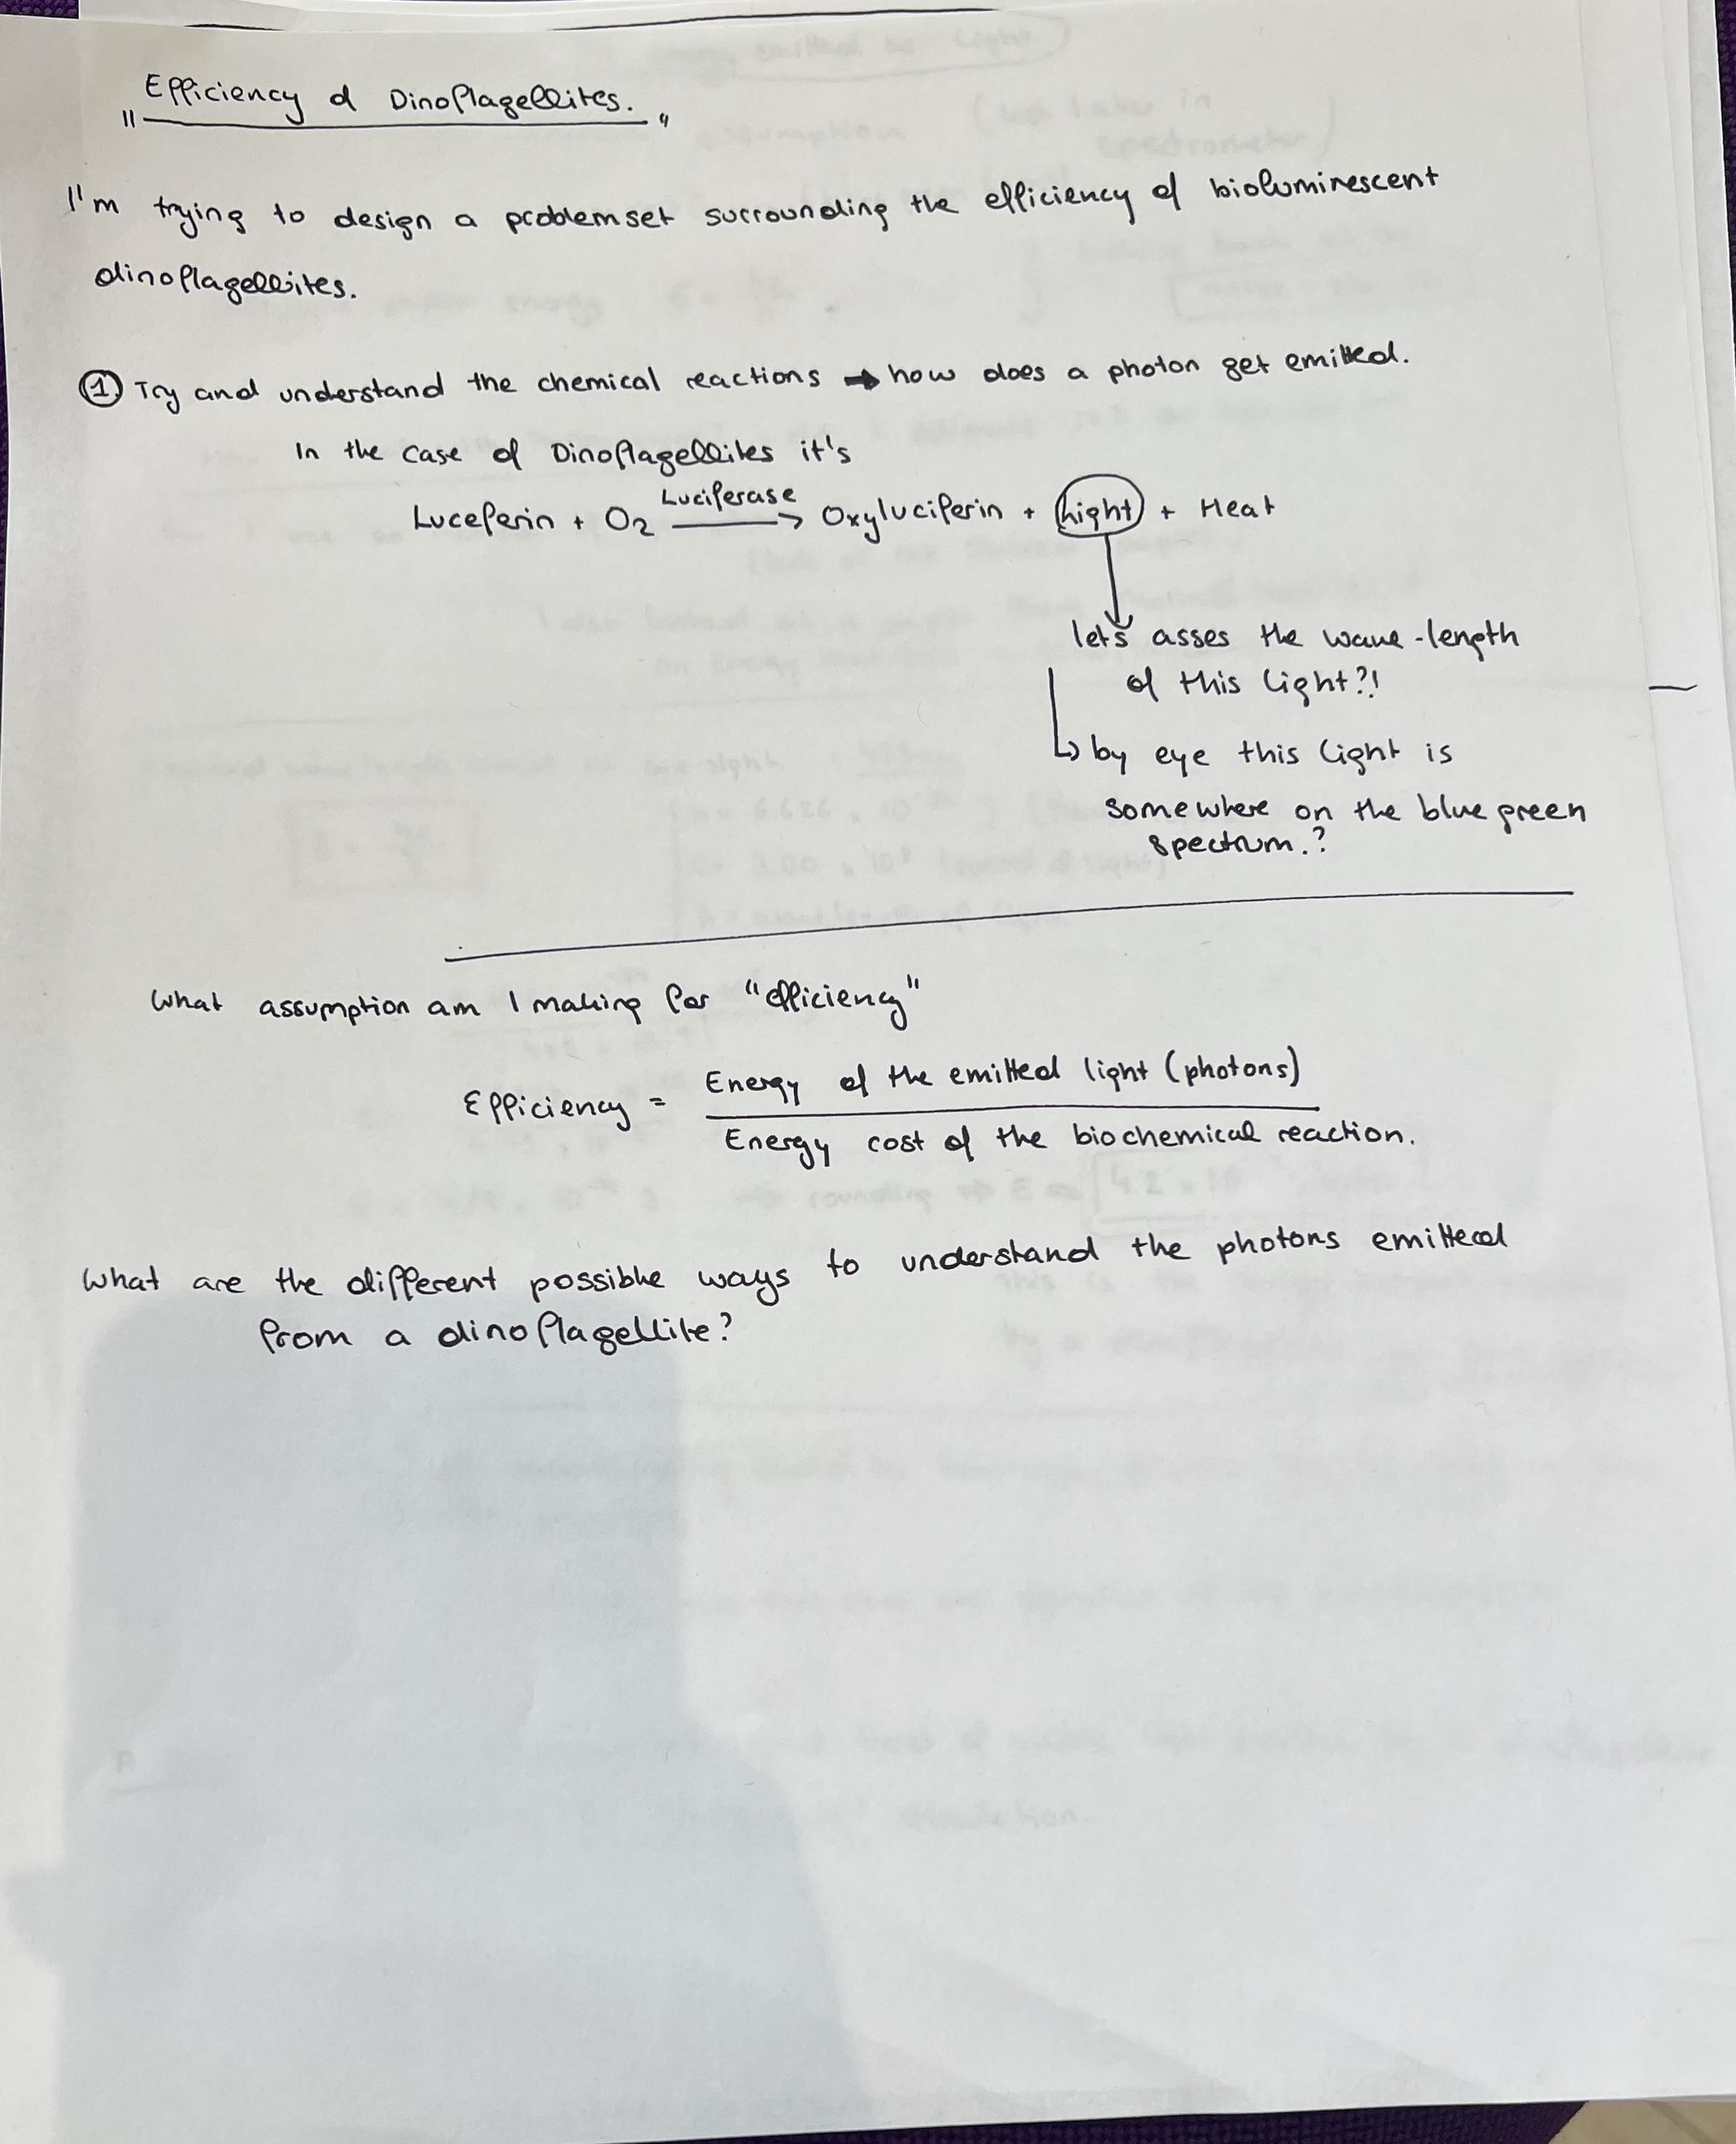 "Efficiency of Dinoflagellites."
I'm trying to design a problemset surrounding the efficiency of bioluminescent
dinoflagellites.
① Try and understand the chemical reactions → how does a photon get emitted.
In the case of Dinoflagellites it's
Luceferin + O2 Luciferase → Oxyluciferin + Light + Heat
lets asses the wave-length
of this light?!
↳ by eye this light is
somewhere on the blue green
spectrum.?
What assumption am I making for "efficiency"
Efficiency = Energy of the emitted light (photons)
Energy cost of the biochemical reaction.
What are the different possible ways to understand the photons emitted
from a dinoflagellite?